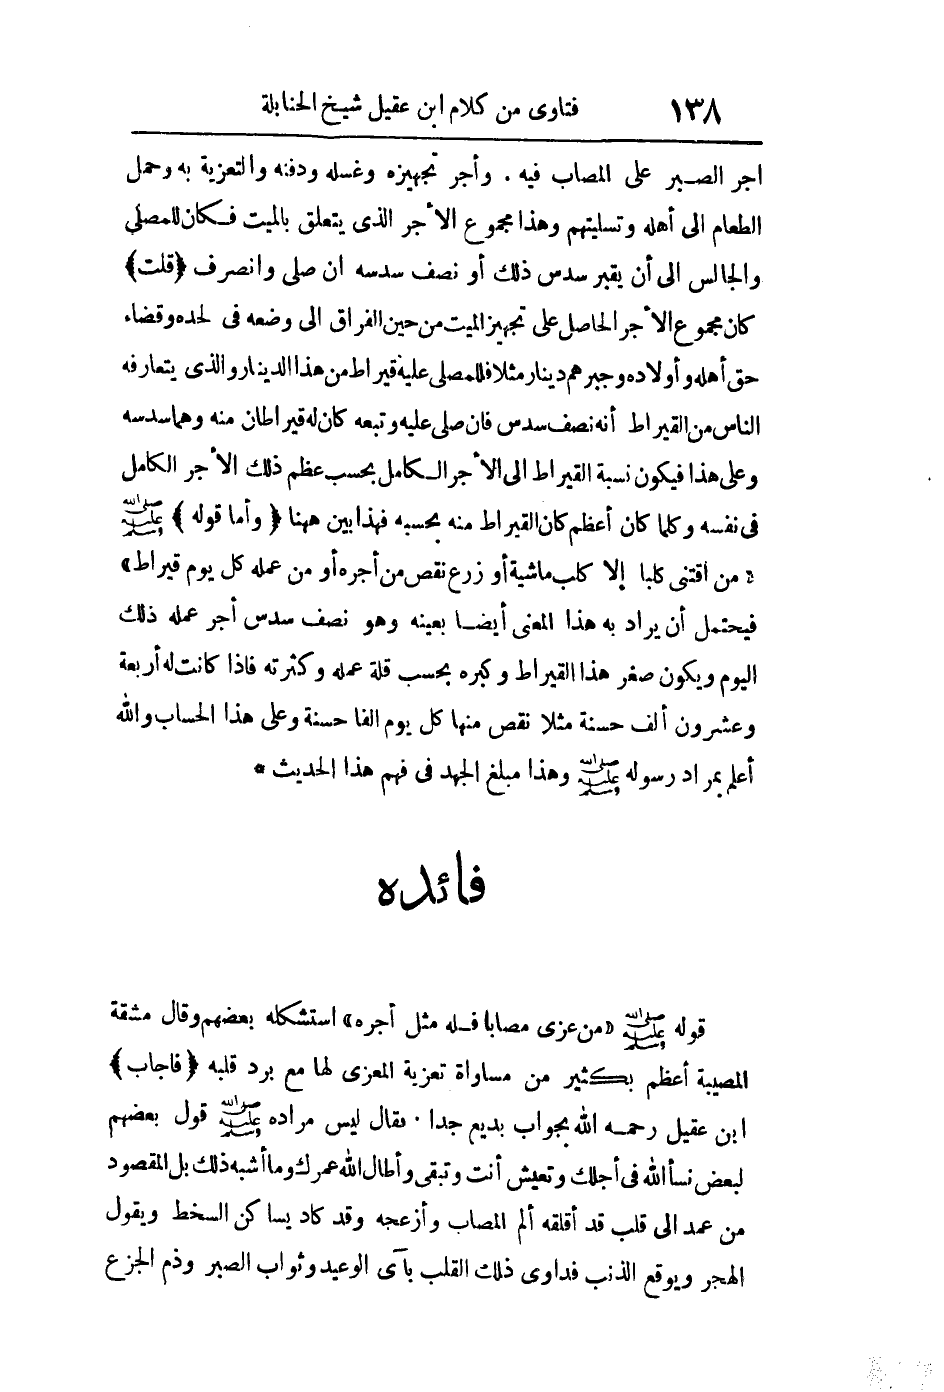 ١٣٨ فتاوى من كلام ابن عقيل شيخ الحنابلة
اجر الصبر على المصاب فيه . وأجر تجهيزه وغسله ودفنه والتعزية به وحمل
الطعام الى أهله وتسليتهم وهذا مجموع الأجر الذى يتعلق بالميت فكان للمصلى
والجالس الى أن يقبر سدس ذلك أو نصف سدسه ان صلى وانصرف ﴿قلت﴾
كان مجموع الأجر الحاصل على تجهيز الميت من حين الفراق الى وضعه فى لحده وقضاء
حق أهله وأولاده وجبرهم دينار مثلا فللمصلى عليه قيراط من هذا الدينار والذى يتعارفه
الناس من القيراط أنه نصف سدس فان صلى عليه وتبعه كان له قيراطان منه وهما سدسه
وعلى هذا فيكون نسبة القيراط الى الأجر الكامل بحسب عظم ذلك الأجر الكامل
فى نفسه وكلما كان أعظم كان القيراط منه بحسبه فهذا بين ههنا ﴿ وأما قوله ﴾ ﷺ
« من اقتنى كلبا إلا كلب ماشية أو زرع نقص من أجره أو من عمله كل يوم قيراط»
فيحتمل أن يراد به هذا المعنى أيضا بعينه وهو نصف سدس أجر عمله ذلك
اليوم ويكون صغر هذا القيراط وكبره بحسب قلة عمله وكثرته فاذا كانت له أربعة
وعشرون ألف حسنة مثلا نقص منها كل يوم الفا حسنة وعلى هذا الحساب والله
أعلم بمراد رسوله ﷺ وهذا مبلغ الجهد فى فهم هذا الحديث *
فائده
قوله ﷺ «من عزى مصابا فله مثل أجره» استشكله بعضهم وقال مشقة
المصيبة أعظم بكثير من مساواة تعزية المعزى لها مع برد قلبه ﴿فاجاب﴾
ابن عقيل رحمه الله بجواب بديع جدا . فقال ليس مراده ﷺ قول بعضهم
لبعض نسأ الله فى أجلك وتعيش أنت وتبقى وأطال الله عمرك وما أشبه ذلك بل المقصود
من عمد الى قلب قد أقلقه ألم المصاب وأزعجه وقد كاد يساكن السخط ويقول
الهجر ويوقع الذنب فداوى ذلك القلب بآى الوعيد وثواب الصبر وذم الجزع